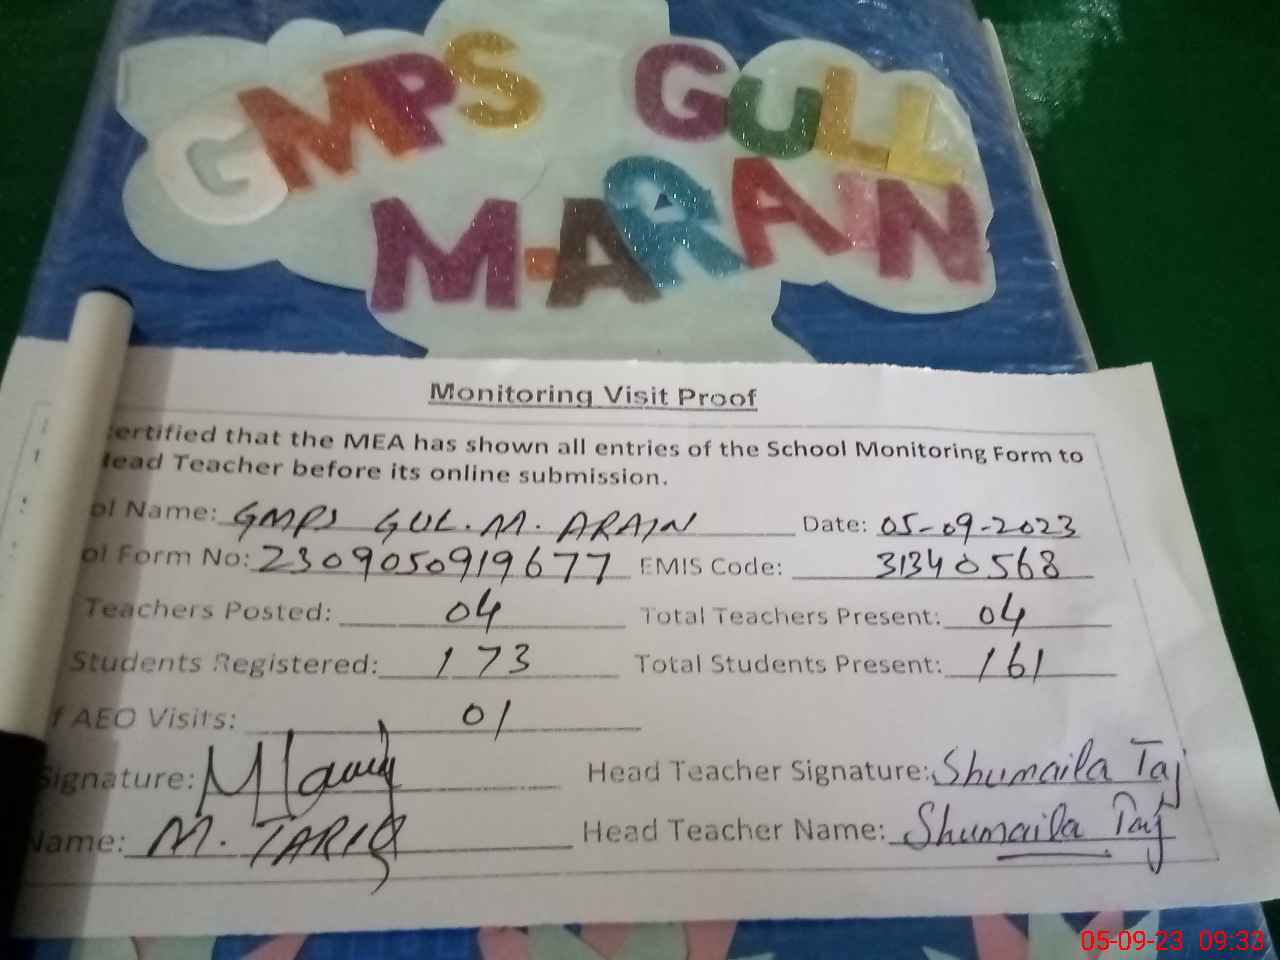 GMPS GULL
M-ARAIN
Monitoring Visit Proof
ertified that the MEA has shown all entries of the School Monitoring Form to
ead Teacher before its online submission.
ol Name: GMPS GUL.M. ARAIN Date: 05-09-2023
ol Form No: 2309050919677 EMIS Code: 31340568
Teachers Posted: 04 Total Teachers Present: 04
Students Registered: 173 Total Students Present: 161
f AEO Visits: 01
Signature: Head Teacher Signature: Shumaila Taj
Name: M. TARIQ Head Teacher Name: Shumaila Taj
05-09-23 09:33